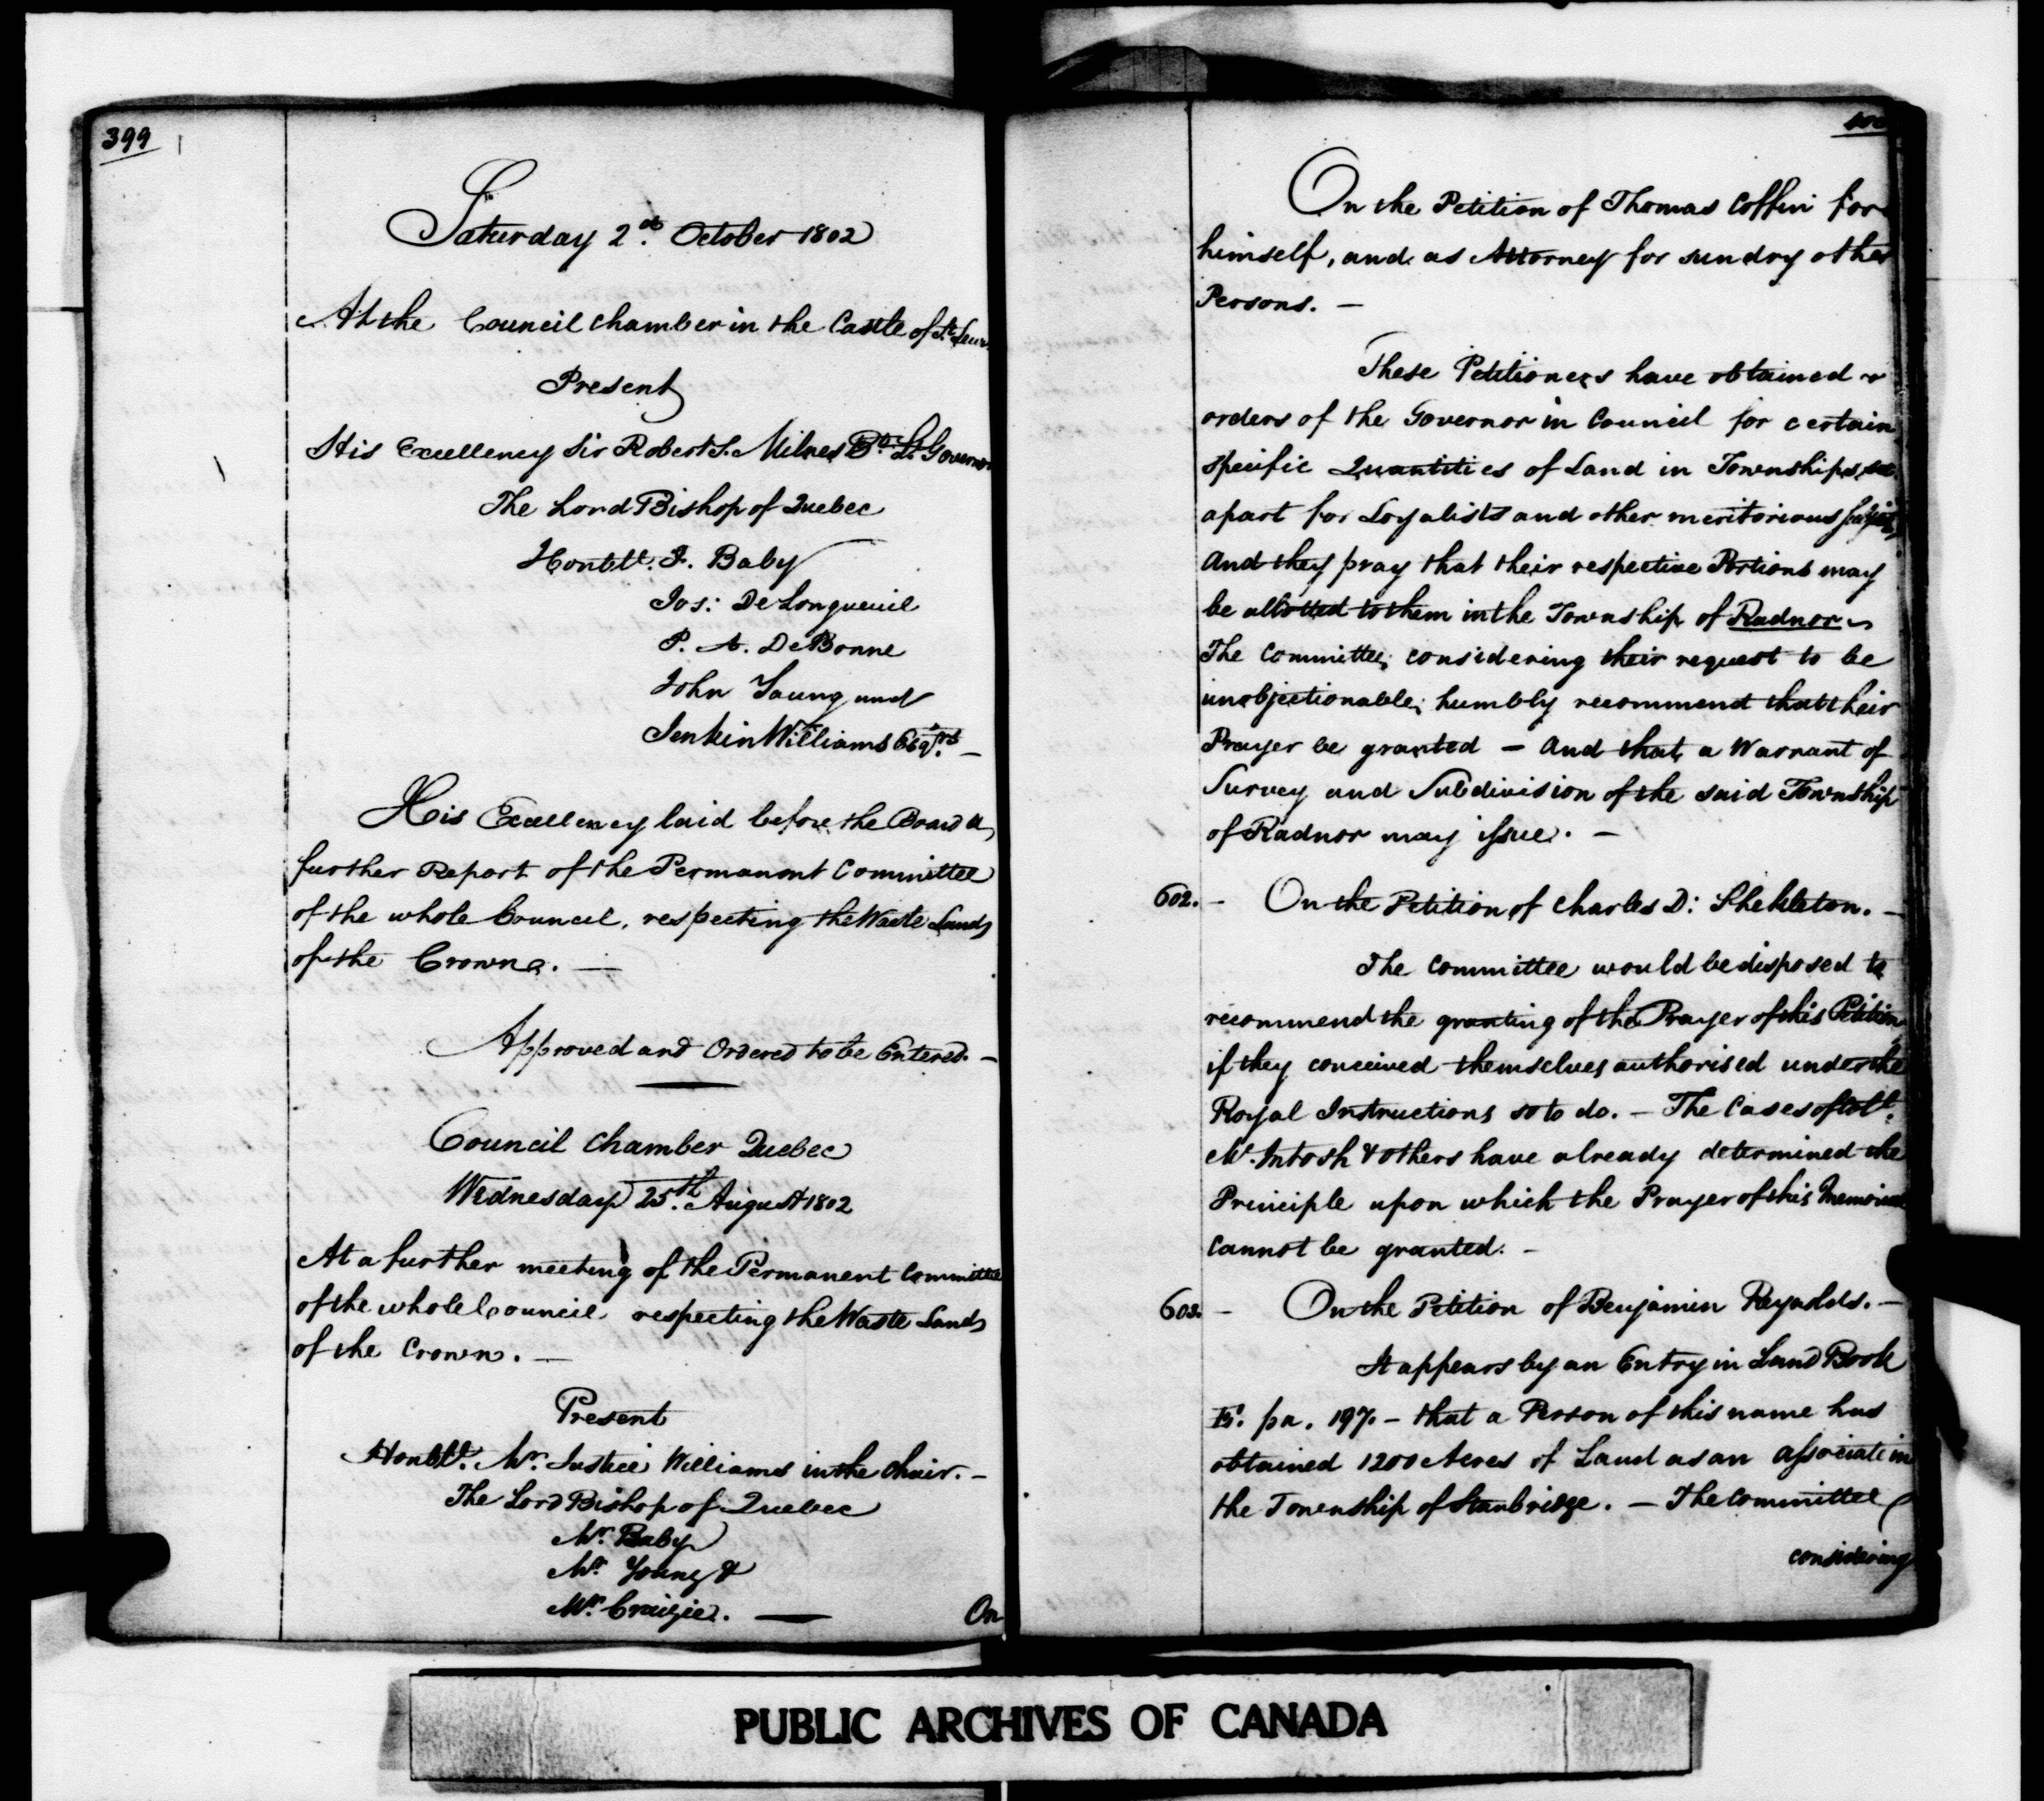 399
Saturday 2d. October 1802
At the Council Chamber in the Castle of St. Lewis
Present
His Excellency Sir Robert S. Milnes Bt. Lt. Governor
The Lord Bishop of Quebec
Honble. F. Baby
Jos: De Longueuil
P. A. De Bonne
John Young and
Jenkin Williams Esqrs. —
His Excellency laid before the Board a
further Report of the Permanent Committee
of the whole Council, respecting the Waste Lands
of the Crown. —
Approved and Ordered to be Entered. —
Council Chamber Quebec
Wednesday 25th. August 1802
At a further meeting of the Permanent Committee
of the whole Council respecting the Waste Lands
of the Crown. —
Present
Honble. Mr. Justice Williams in the Chair. —
The Lord Bishop of Quebec
Mr. Baby
Mr. Young &
Mr. Craigie. —
On
400
On the Petition of Thomas Coffin for
himself, and as Attorney for sundry other
Persons. —
These Petitioners have obtained
orders of the Governor in Council for certain
specific Quantities of Land in Townships set
apart for Loyalists and other meritorious
And they pray that their respective Portions may
be allotted to them in the Township of Radnor
The Committee, considering their request to be
unobjectionable, humbly recommend that their
Prayer be granted — And that a Warrant of
Survey and Subdivision of the said Township
of Radnor may issue. —
602. — On the Petition of Charles D: Shekleton. —
The Committee would be disposed to
recommend the granting of the Prayer of this Petition
if they conceived themselves authorised under the
Royal Instructions so to do. — The Cases of Colt.
Mc.Intosh & others have already determined the
Principle upon which the Prayer of this Memorial
cannot be granted. —
603. — On the Petition of Benjamin Reynolds. —
It appears by an Entry in Land Book
pa. 197. — that a Person of this name has
obtained 1200 Acres of Land as an Associate in
the Township of Stanbridge. — The Committee
considering
PUBLIC ARCHIVES OF CANADA